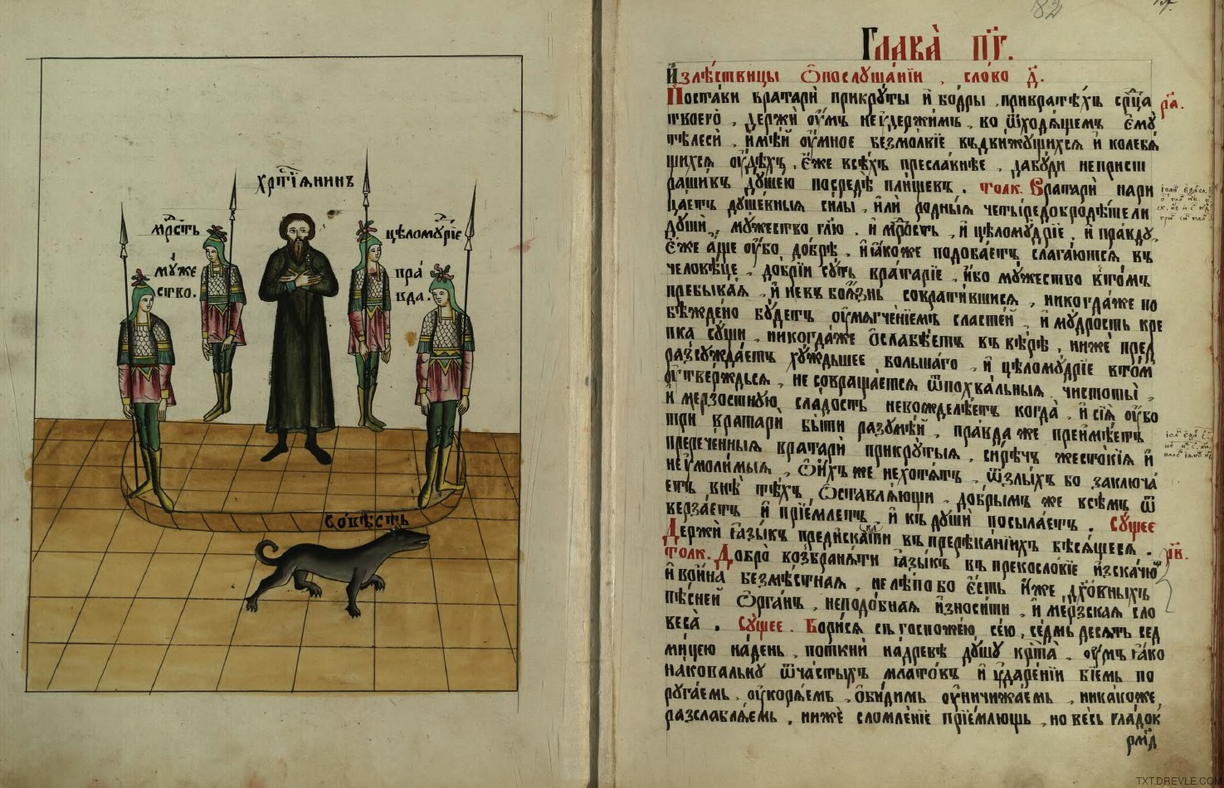 хрⷭ҇тїѧнинъ
мⷣрость
цѣломꙋⷣрїе
мꙋже
ство.
пра
вда.
Со́вѣсть
82
Глава̀ п҃г.
И҆злѣствицы ѡ҆послꙋша́нїи , сло́во д҃.
Поста́ви врата́ри прикрꙋ́ты и҆ бо́дры , привратѣ́хъ срⷣца р҃а.
твоегѡ̀ , держѝ оу҆́мъ неꙋ҆держи́мъ , во ѿходѧ́щемъ є҆мꙋ̀
тѣлесѝ , и҆мѣ́й оу҆́мное безмо́лвїе въдви́жꙋщихсѧ и҆ коле́блю
щихсѧ оу҆́дѣхъ , є҆́же всѣ́хъ пресла́внѣе , забꙋ́ди
дꙋше́ю посредѣ̀ пли́щевъ . толк. Врата́ри нари
ца́етъ дꙋшє́вныѧ си́лы , и҆лѝ ро́дныѧ четы́редобродѣ́тели
дꙋшѝ , мꙋ́жество гл҃ю , и҆ мⷣрость , и҆ цѣломꙋ́дрїе , и҆ пра́вдꙋ ,
є҆́же а҆́ще оу҆́бо , до́брѣ , и҆ꙗ҆́коже подоба́етъ слага́ютсѧ въ
человѣ́це , до́брїи сꙋ́ть врата́рїе , и҆́бо мꙋ́жество втⷪ҇мъ
пребыва́ѧ , и҆ невъ боѧ́знь соврати́вшисѧ , никогда́же по
бѣжде́но бꙋ́детъ оу҆мѧгче́нїемъ сласте́й , и҆ мꙋ́дрость кре
пка сꙋ́щи , никогда́же ѡ҆слабѣ́етъ въ вѣ́рѣ , ни́же пред
разсꙋжда́етъ хꙋ́ждьшее бо́льшаго , и҆ цѣломꙋ́дрїе втⷪ҇м
оу҆тве́рждьсѧ , не совраща́етсѧ ѿпохва́льныѧ , чистоты̀ ,
и҆ ме́рзостнꙋю сла́дость невожделѣ́етъ когда̀ , и҆ сїѧ̀ оу҆́бо
три врата́ри бы́ти разꙋмѣ́й , пра́вда же преимѣ́етъ
пререче́нныѧ врата́ри прикрꙋ́тыѧ , си́рѣч же́стокїѧ и҆
неꙋ҆моли́мыѧ , ѡ҆ни́хъ же нехотѧ́тъ , ѿзлы́хъ во заключа́
етъ внѣ̀ тѣ́хъ , ѡ҆ставлѧ́ющи , до́брымъ же всѣ́мъ ѿ
верза́етъ и҆ прїе́млетъ , и҆ къ дꙋшѝ посыла́етъ . Сꙋ́щее
Держѝ ꙗ҆зы́къ предиска́ти въ прерѣка́нїихъ бѣсѧ́щесѧ .
толк. До́брѡ возбранѧ́ти ꙗ҆зы́къ въ прекосло́вїе и҆зска́чю р҃в.
и҆ война̀ безмѣ́стная , нелѣ́по бо є҆́сть и҆́же дꙋхо́вныхъ
пѣ́сней ѻ҆рга́нъ , неподо́бная и҆зноси́ти , и҆ ме́рзская сло
веса̀ . Сꙋ́щее . Бори́сѧ съ госпоже́ю , се́ю , се́дмь десѧ́тъ сед
ми́цею на́день , поткнѝ на́древѣ дꙋ́шꙋ крⷭ҇та̀ . оу҆́мъ ꙗ҆́ко
накова́льнꙋ ѿча́стыхъ мла́товъ и҆ ꙋ҆даре́нїи бїе́мь по
рꙋга́емь , оу҆корѧ́емь , ѻ҆би́димь оу҆ничижа́емь , ника́коже
разслаблѧ́емь , ни́же сломле́нїе прїе́млющь , но ве́сь гла́док
рм҃д
TXT.DREVLE.COM